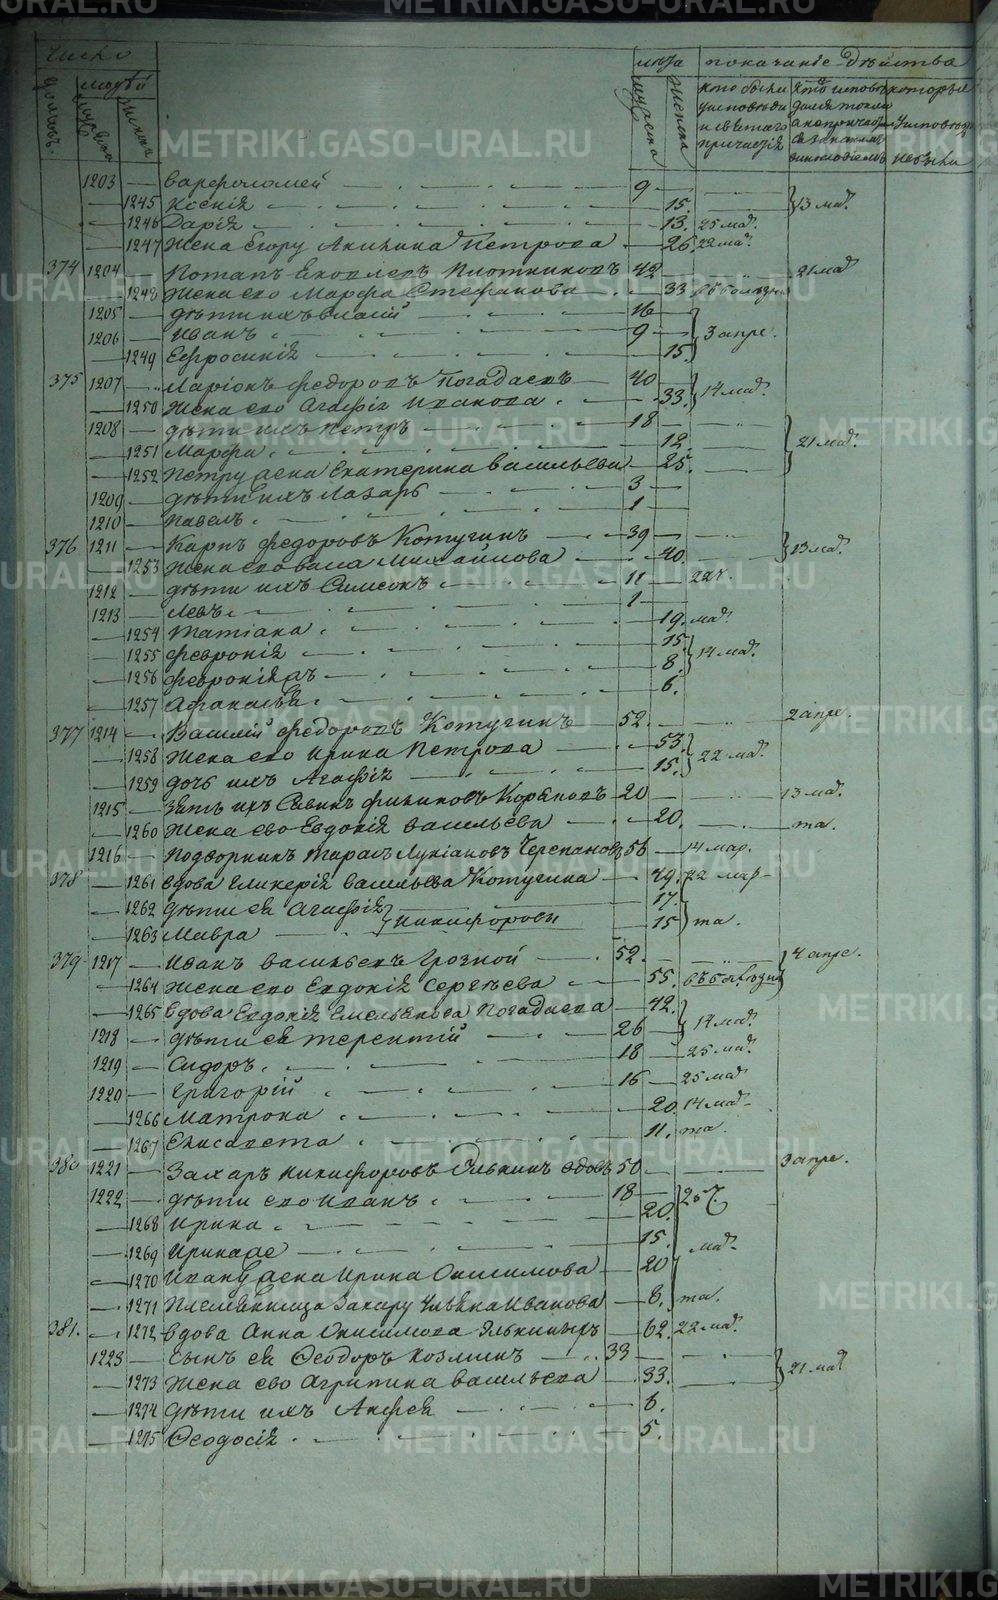 METRIKI.GASO-URAL.RU
Число
лѣта
показаніе дѣйства
домовъ.
людей
мужеска
женска
мужеска
женска
кто были у исповѣди и святаго причастія
которые
у исповѣди не были
1203 — Варфоломей — 9 —
— 1245 Ксенія — 15. 13 мар.
— 1246 Дарія — 13. 25 мар.
— 1247 Жена Егору Акилина Петрова — 26. 22 мар.
374 1204 — Потапъ Яковлевъ Плотниковъ 42 — 21 мар
— 1248 Жена его Марфа Стефанова — 33 въ болѣзни
1205 — дѣти ихъ Василій — 16
1206 — Иванъ — 9 — 3 апре.
— 1249 Ефросинія — 15.
375 1207 — Ларіонъ Федоровъ Погадаевъ — 40 —
— 1250 Жена его Агафія Иванова — 33. 14 мар.
1208 — дѣти ихъ Петръ — 18 —
— 1251 Марфа — 12. 21 мар.
— 1252 Петру жена Екатерина Васильева — 25.
1209 — дѣти ихъ Лазарь — 3 —
1210 — Павелъ — 1 —
376 1211 — Карпъ Федоровъ Котугинъ — 39 — 13 мар.
— 1253 Жена его Васса Михайлова — 40.
1212 — дѣти ихъ Симеонъ — 11 — 22
1213 — Левъ — 1 —
— 1254 Татіана — 19. мар.
— 1255 Февронія — 15.
— 1256 Февронія — 8. 14 мар.
— 1257 Афанасья — 6.
377 1214 — Василій Федоровъ Котугинъ — 52. — 2 апре.
— 1258 Жена его Ирина Петрова — 53.
— 1259 дочь ихъ Агафія — 15. 22 мар.
1215 — Зять ихъ Савинъ Филиповъ 20 — 13 мар.
— 1260 Жена его Евдокія Васильева — 20. — та.
1216 — Подворникъ Тарасъ Лукіановъ Черепановъ 56 — 14 мар.
378 — 1261 Вдова Гликерія Васильева Котугина — 49. 22 мар.
— 1262 дѣти ея Агафія — 17.
— 1263 Мавра Никифоровы — 15 та.
379 1217 — Иванъ Васильевъ Грозной — 52. — 4 апре.
— 1264 Жена его Евдокія Сергѣева — 55. въ болѣзни
— 1265 Вдова Евдокія Емельянова Погадаева — 42.
1218 — дѣти ея Терентій — 26 — 14 мар.
1219 — Сидоръ — 18 — 25 мар.
1220 — Григорій — 16 — 25 мар
— 1266 Матрона — 20. 14 мар.
— 1267 Елисавета — 11. та.
380 1221 — Захаръ Никифоровъ Элькинъ вдовъ 50 — 3 апре.
1222 — дѣти его Иванъ — 18 — 25
— 1268 Ирина — 20.
— 1269 Иринаже — 15. мар.
— 1270 Ивану жена Ирина Онисимова — 20
— 1271 Племянница Захару Ульяна Иванова — 8. та.
381. — 1272 Вдова Анна Онисимова — 62. 22 мар.
1223 — Сынъ ея Феодоръ Козминъ — 33 —
— 1273 Жена его Агрипина Васильева — 33. 21 мар
— 1274 дѣти ихъ — 6.
— 1275 Феодосія — 5.